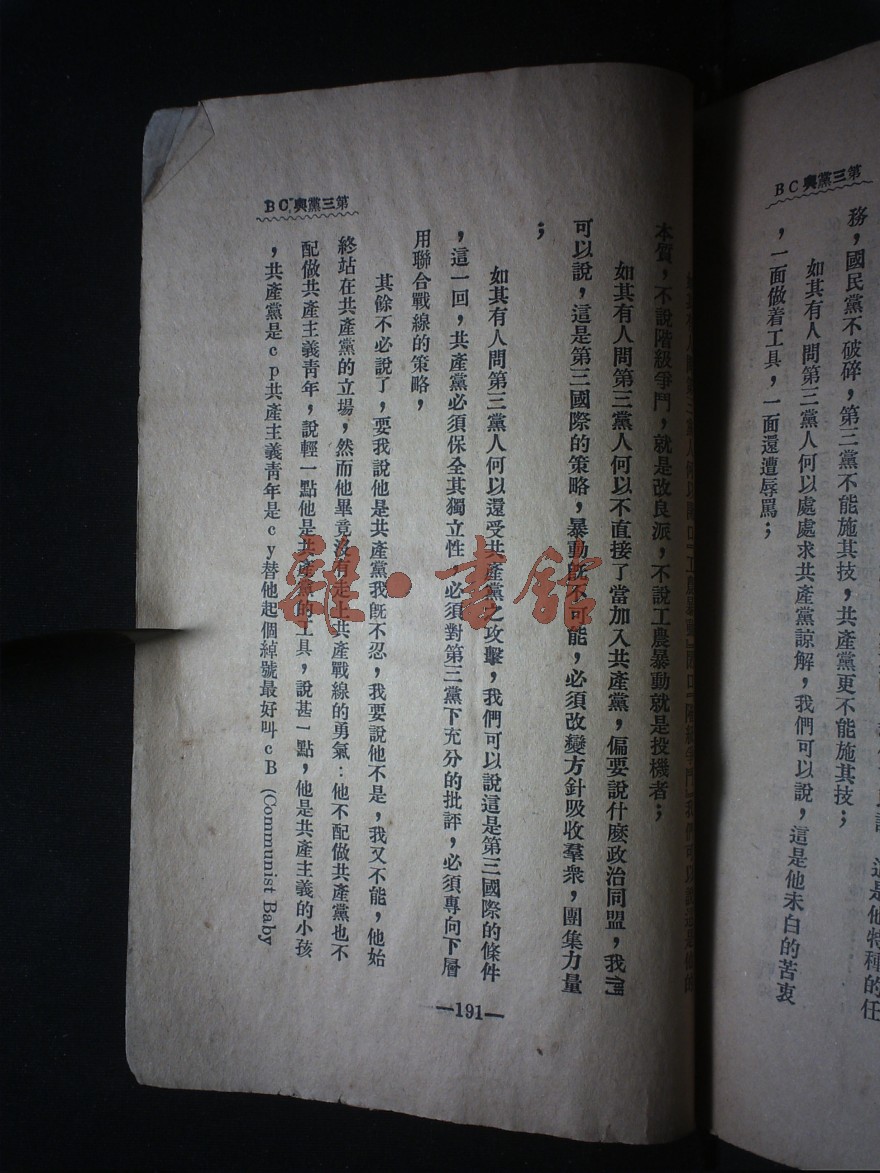 第三黨與CB
務，國民黨不破碎，第三黨不能施其技，共產黨更不能施其技；
如其有人問第三黨人何以處處求共產黨諒解，我們可以說，這是他未白的苦衷
，一面做着工具，一面還遭辱罵；
本質，不說階級爭鬥，就是改良派，不說工農暴動就是投機者；
如其有人問第三黨人何以不直接了當加入共產黨，偏要說什麼政治同盟，我們
可以說，這是第三國際的策略，暴動旣不可能，必須改變方針吸收羣衆，團集力量
；
如其有人問第三黨人何以還受共產黨之攻擊，我們可以說這是第三國際的條件
，這一回，共產黨必須保全其獨立性，必須對第三黨下充分的批評，必須專向下層
用聯合戰線的策略，
其餘不必說了，要我說他是共產黨我旣不忍，我要說他不是，我又不能，他始
終站在共產黨的立場，然而他畢竟沒有走上共產戰線的勇氣：他不配做共產黨也不
配做共產主義靑年，說輕一點他是共產黨的工具，說甚一點，他是共產主義的小孩
，共產黨是cp共產主義靑年是cy替他起個綽號最好叫cB (Communist Baby
第三黨與CB
—191—
雜·書館